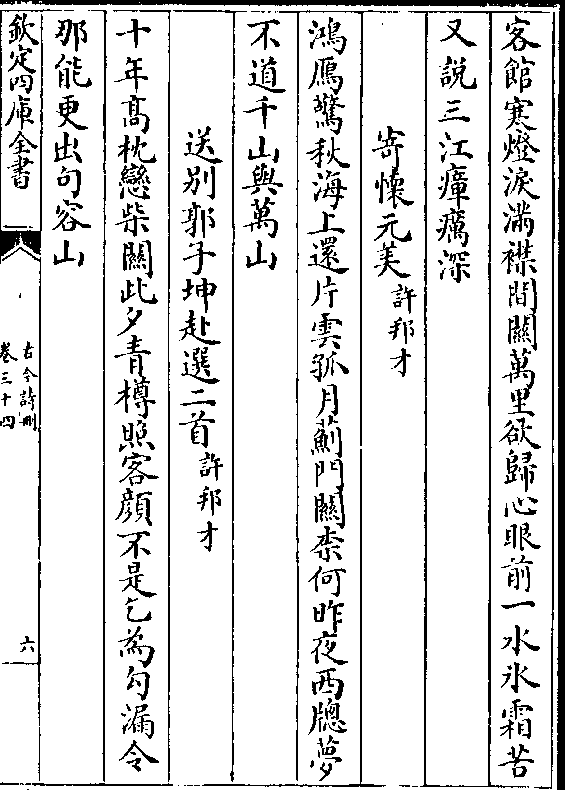 客館寒燈淚滿襟間關萬里欲歸心眼前一水氷霜苦
又說三江瘴癘深
寄懷元美許邦才
鴻鴈驚秋海上還片雲孤月薊門關柰何昨夜西牕夢
不道千山與萬山
送別郭子坤赴選二首許邦才
十年髙枕戀柴關此夕青樽照客顔不是乞為勾漏令
那能更出句容山
欽定四庫全書
古今詩刪
卷三十四
六